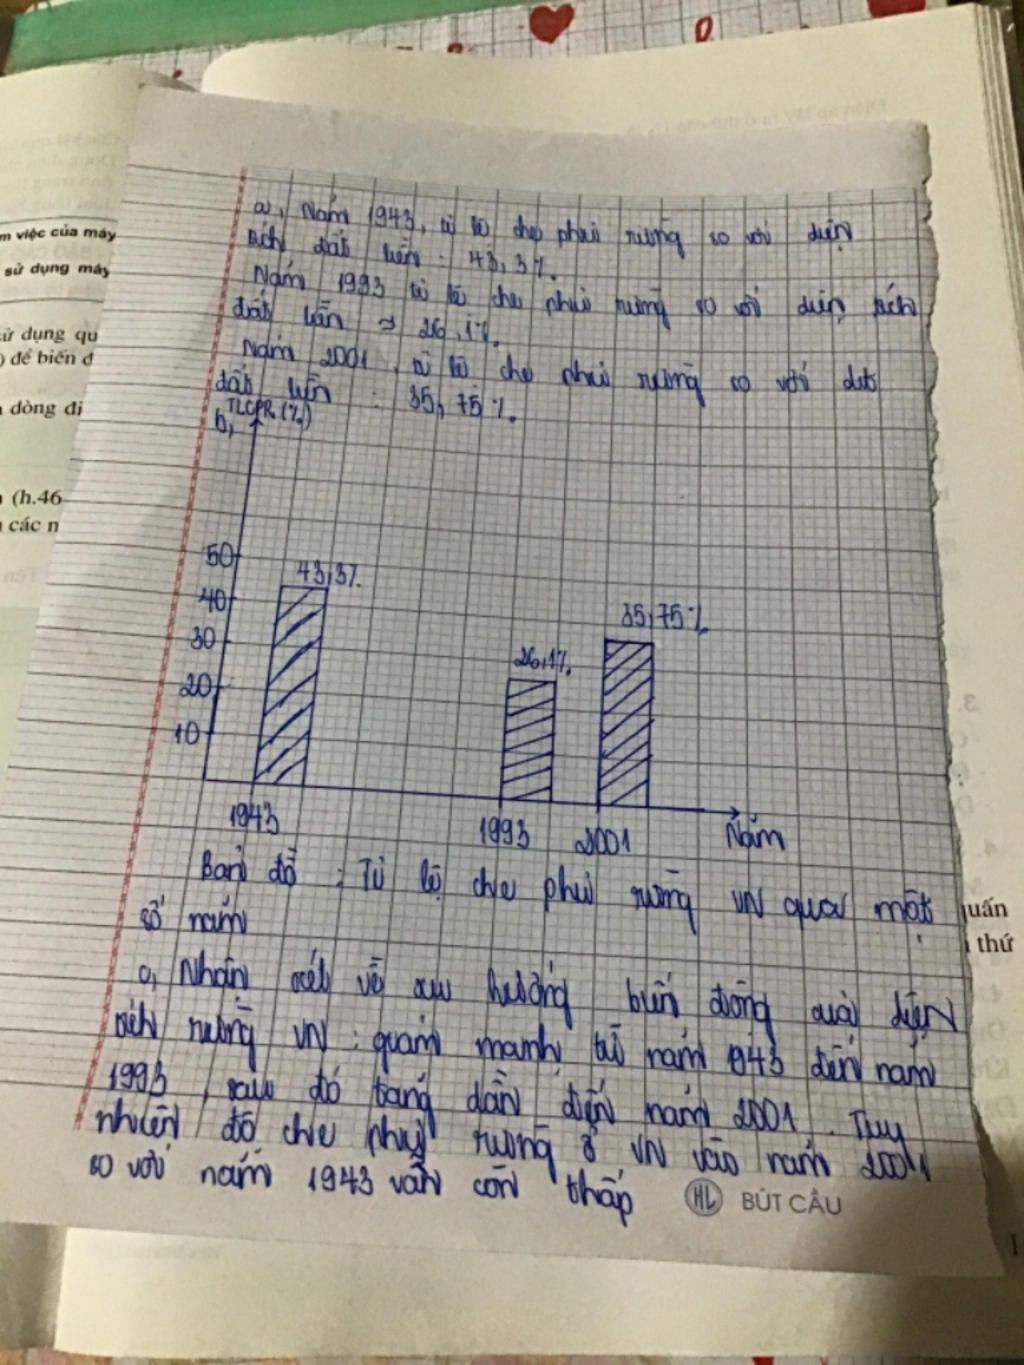 m việc của máy
sử dụng máy
ử dụng qu
) để biến đ
dòng đi
(h.46
các n
a, Năm 1943, tỉ lệ che phủ rừng so với diện
tích đất liền : 43,3%.
Năm 1993 tỉ lệ che phủ rừng so với diện tích
đất liền → 26,1%.
Năm 2001, tỉ lệ che phủ rừng so với
đất liền : 35,75%.
b,
TLCPR (%)
50
40
30
20
10
43,3%
26,1%
35,75%
1943
1993
2001
Năm
Bản đồ : Tỉ lệ che phủ rừng VN qua một
số năm
c, Nhận xét về xu hướng biến động của diện
tích rừng VN : giảm mạnh từ năm 1943 đến năm
1993, sau đó tăng dần đến năm 2001. Tuy
nhiên, độ che phủ rừng ở VN vào năm 2001
so với năm 1943 vẫn còn thấp
HL BÚT CẦU
quấn
thứ